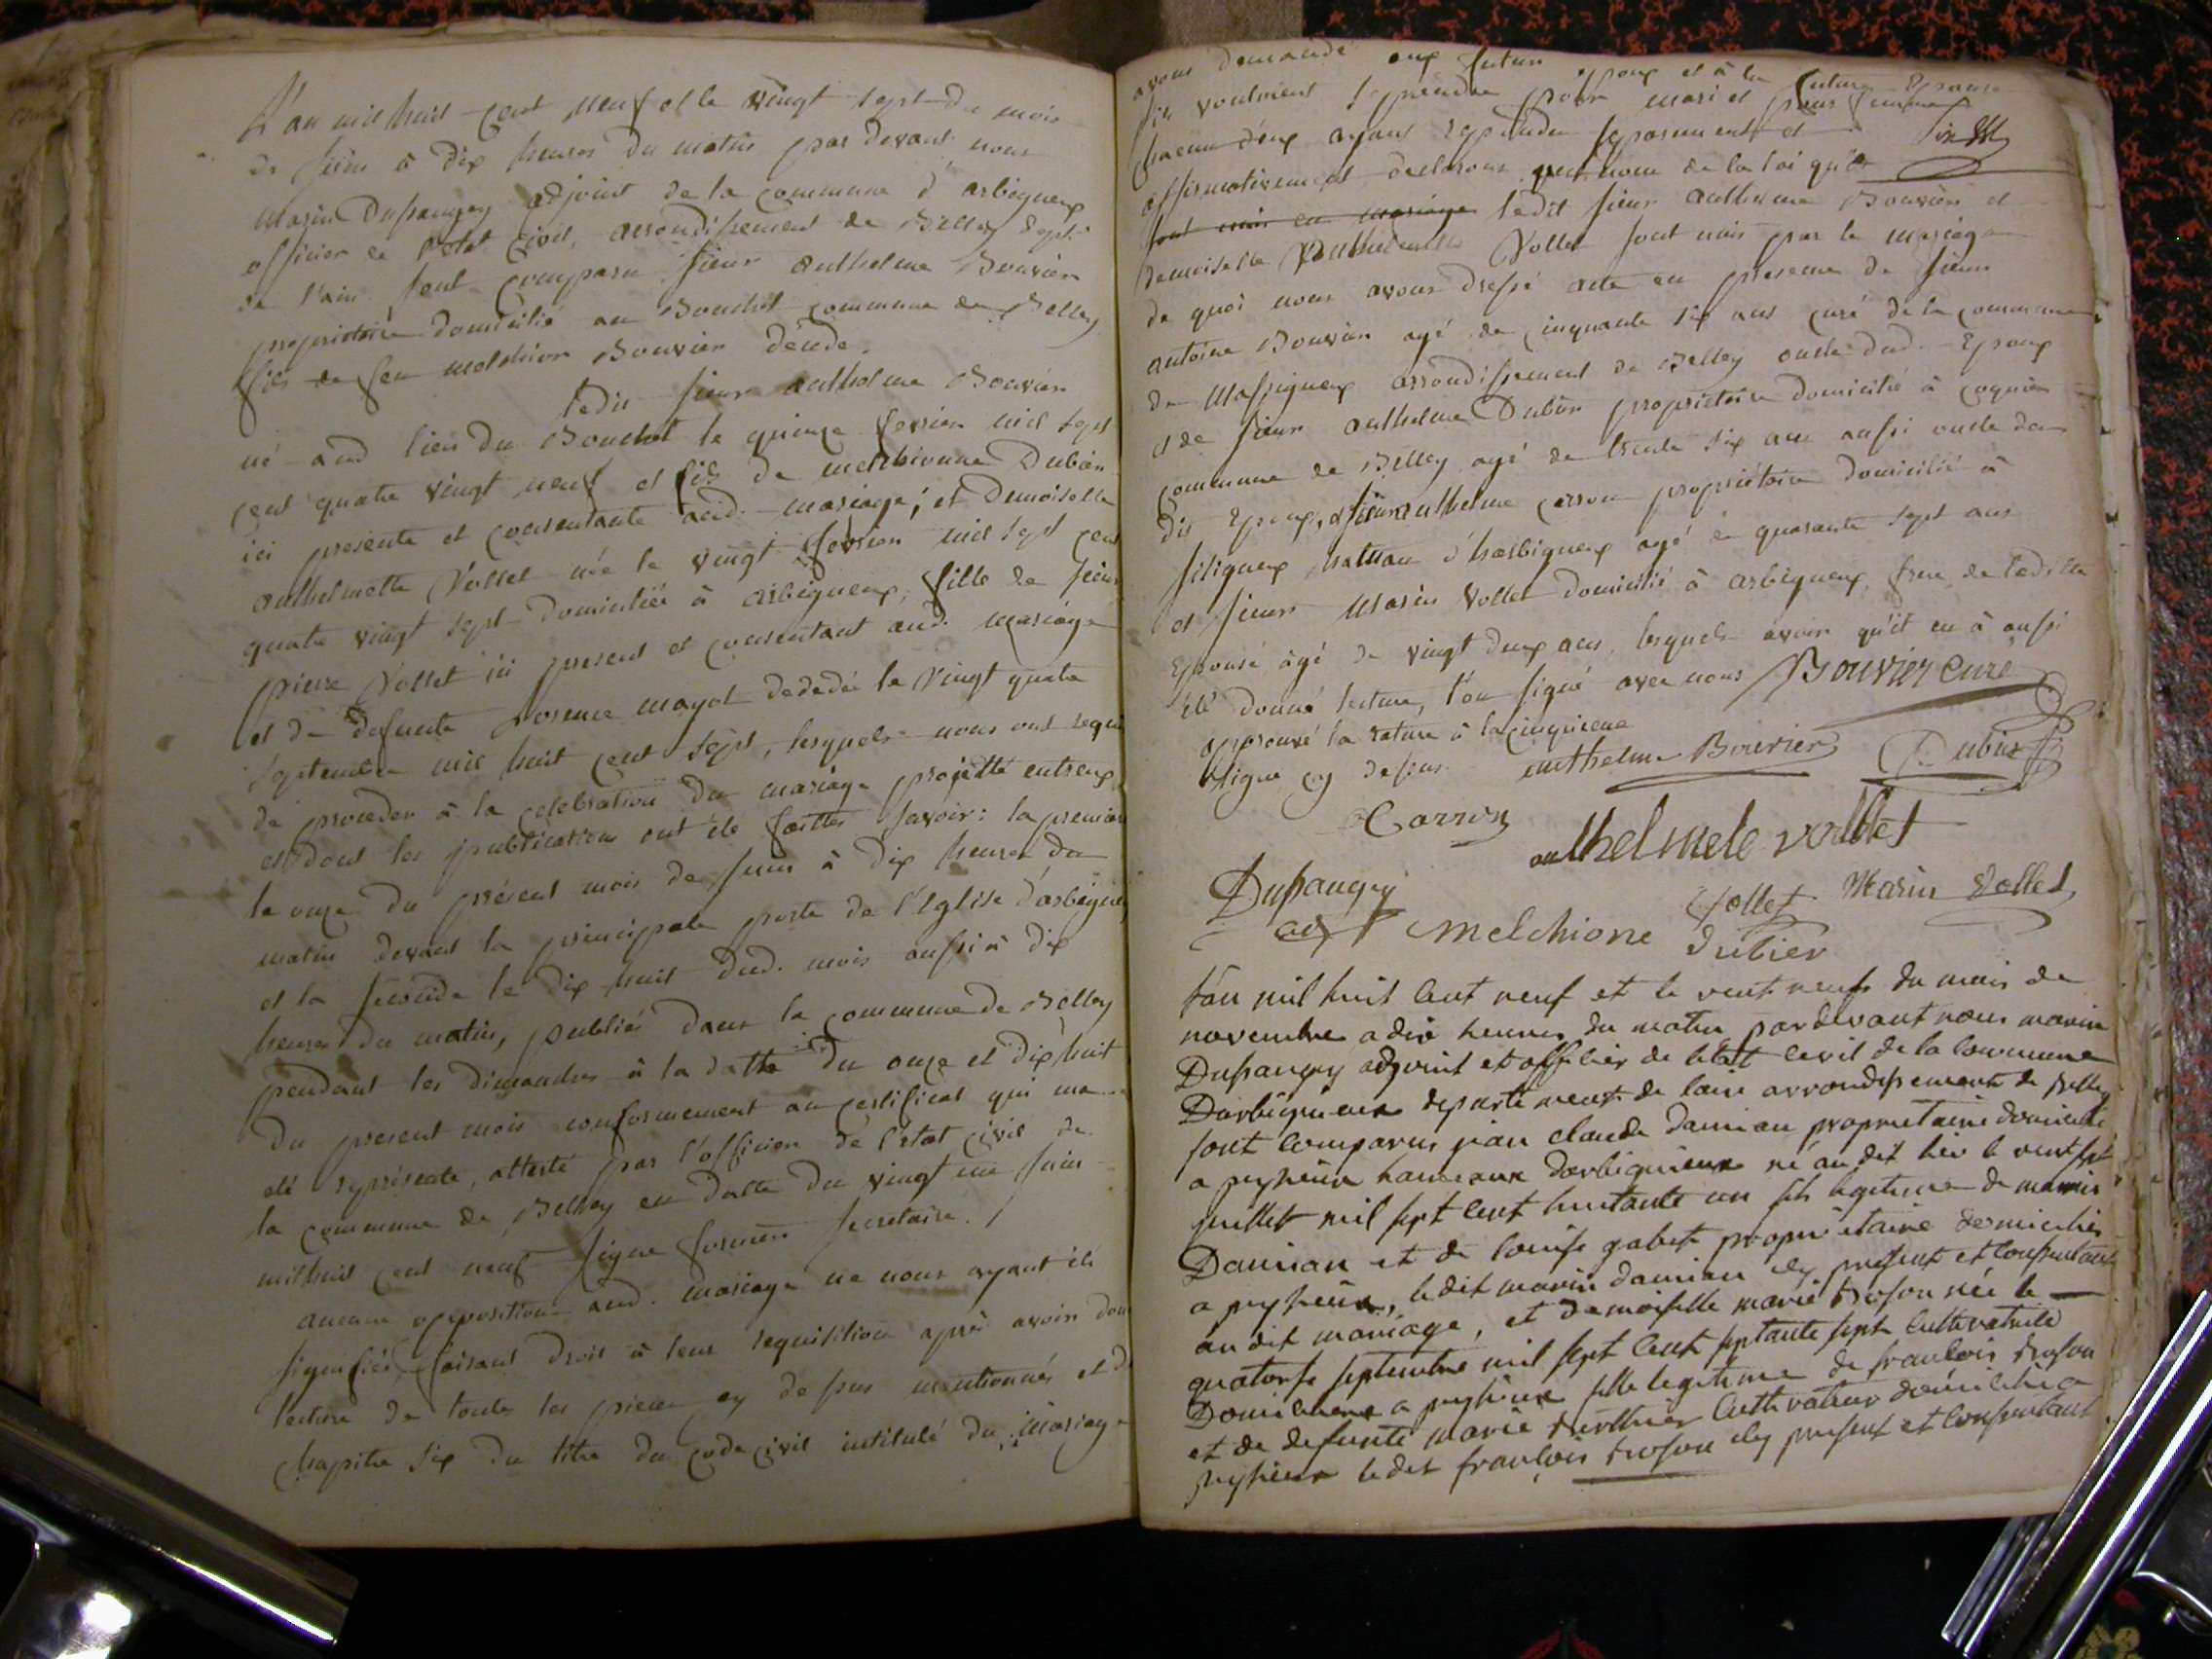 L'an mil huit cent neuf et le vingt sept du mois
de juin à dix heures du matin par devant nous
Marin Dupaugey adjoint de la commune d'arbigneux
officier de l'etat civil, arrondissement de Belley dept.
de l'ain sont comparu sieur anthelme Bouvier
proprietaire domicilié au Bouchet commune de Belley
fils de feu melchior Bouvier décédé.
ledit sieur anthelme Bouvier
né aud lieu du Bouchet le quinze fevrier mil sept
cent quatre vingt neuf et fils de melchionne Dubier
ici presente et consentante aud. mariage; et Demoiselle
anthelmette Vollet née le vingt fevrier mil sept cent
quatre vingt sept domiciliée à arbigneux, fille de sieur
pierre Vollet ici present et consentant aud. mariage
et de defunte mayot dedédée le vingt quatre
septembre mil huit cent sept, lesquels nous ont requi
de proceder à la celebration du mariage projetté entreux
et dont les publications ont été faittes savoir: la premiere
le onze du présent mois de juin à dix heures du
matin devant la principale porte de l'Eglise d'arbigneux
et la seconde le dix huit dud. mois aussi à dix
heures du matin, publié dans la commune de Belley
pendant les dimanches à la datte du onze et dix huit
du present mois conformement au certificat qui ma
été représenté, attesté par l'officier de l'etat civil de
la commune de Belley en datte du vingt un juin
mil huit cent neuf signé secretaire.
aucune opposition aud. mariage ne nous ayant été
signifiée, faisant droit à leur requisition après avoir don
lecture de toutes les pieces cy dessus mentionnés et d
chapitre six du titre du code civil intitulé du mariage
avons demandé aux futur epoux et à la future Epouse
s'ils vouloient se prendre pour mari et pour femme
chacun d'eux ayant repondu separement et
affirmativement declarons au nom de la loi que
sont unis en mariage ledit sieur anthelme Bouvier et
demoiselle anthelmette Vollet sont unis par le mariage
de quoi nous avons dressé acte en presence de sieur
antoine Bouvier agé de cinquante six ans curé de la commune
de Massigneux arrondissement de Belley oncle dud. Epoux
et de sieur anthelme Dubier proprietaire domicilié à coquin
commune de Belley agé de trente six ans aussi oncle du
dit Epoux, et sieur anthelme carron propriétaire domicilié à
siligneux hameau d'harbigneux agé de quarante sept ans
et sieur Marin Vollet domicilié à arbigneux, frere de ladite
Epouse agé de vingt deux ans, lesquels avoir qu'il en à aussi
été donné lecture, l'on signé avec nous Bouvier curé
approuvé la rature à la cinquieme
ligne cy dessus anthelme Bouvier Dubier
Carron
anthelmete vollet
Dupaugey
adj melchione dubier Vollet Marin Vollet
L'an mil huit cent neuf et le vent neuf du mois de
novembre a dix heures du matin pardevant nous marin
Dupaugey adjoint et officier de letat civil de la commune
Darbigneux departement de lain arrondissement de belley
sont comparus jean claude damian proprietaire domicilié
a peyzieux hameaux darbignieux né au dit lieu le vent sept
juillet mil sept cent huitante un fils legitime de marin
Damian et de louise gabet proprietaire domicilies
a peyzieux, le dit marin damian icy present et consentant
au dit mariage, et demoiselle marie trofon née le
quatorse septembre mil sept cent septante sept cultivatrice
Domicilliere a peyzieux fille legitime de francois trofon
et de defunte marie berthier cultivateur domicilié a
peyzieux le dit françois trofon icy present et consentant